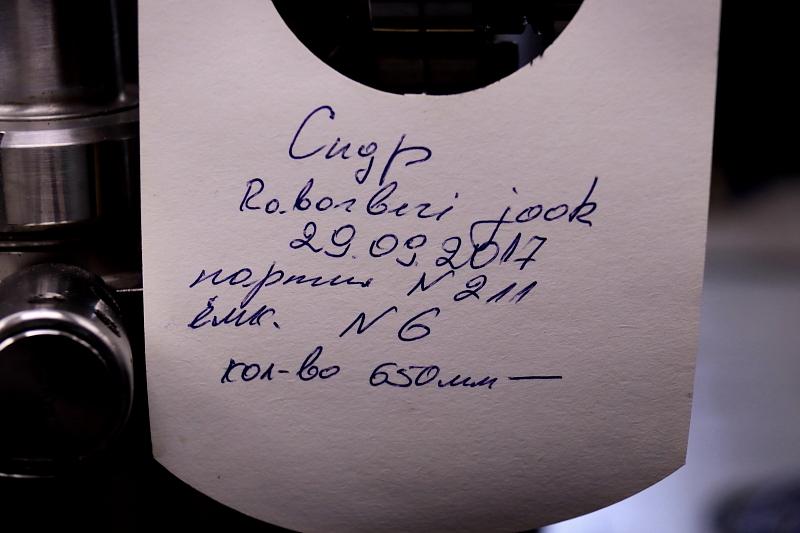 Сидр
Rabarberi jook
29.09.2017
партия N 211
ёмк. N 6
кол-во 650мм —